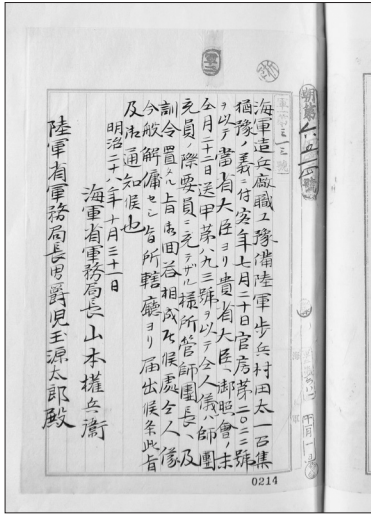 海軍造兵廠職工豫備陸軍歩兵村田太一召集
猶豫ノ義ニ付客年七月二十日官房第二〇二二號
ヲ以テ當省大臣ヨリ貴省大臣ヘ御照會ノ末
仝月二十二日送甲第八九三號ヲ以テ仝人儀ハ師團
充員ノ際要員ニ充テザル様所管師團長ヘ及
訓令置タル旨御回答相成居候處仝人儀
今般解傭セシ旨所轄廳ヨリ届出候条此旨
及御通知候也
明治二十六年十月三十一日
海軍省軍務局長山本權兵衛
陸軍省軍務局長男爵児玉源太郎殿
0214